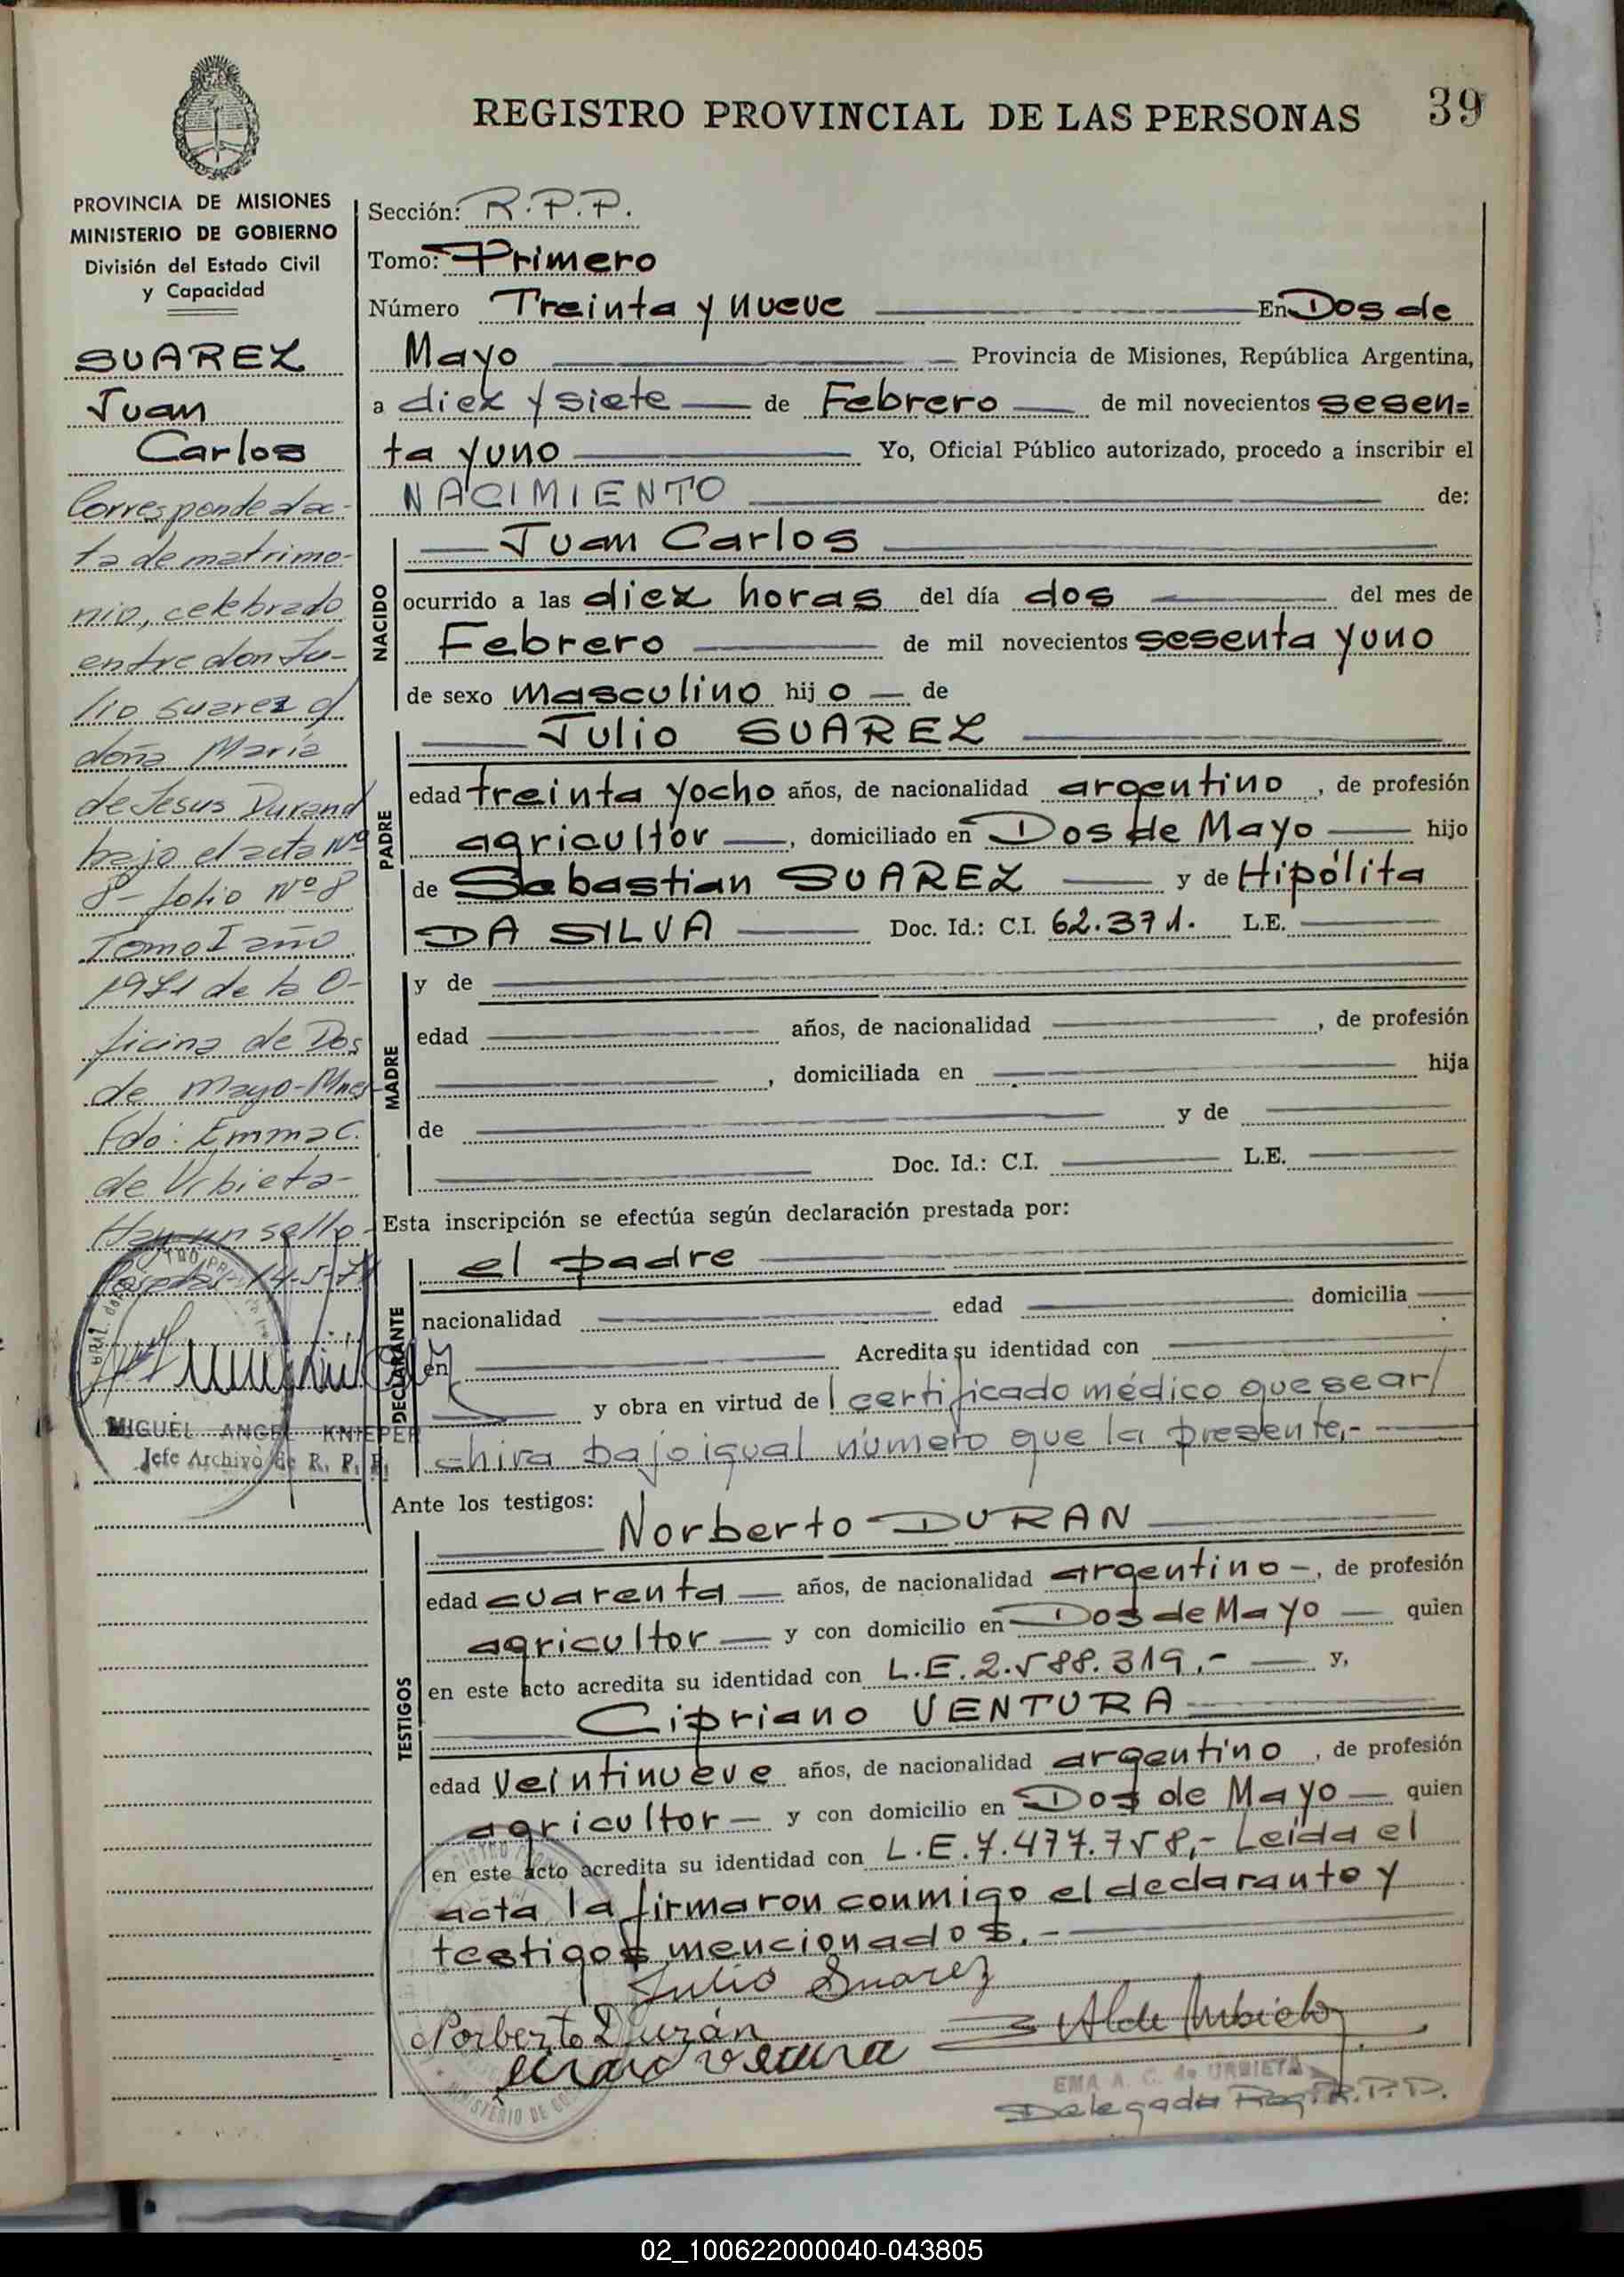 REGISTRO PROVINCIAL DE LAS PERSONAS 39
PROVINCIA DE MISIONES
MINISTERIO DE GOBIERNO
División del Estado Civil
y Capacidad
SUAREZ
Juan
Carlos
Corresponde al ac-
ta de matrimo-
nio, celebrado
entre don Ju-
lio Suarez y
doña María
de Jesus Durand
bajo el acta Nº
8 - folio Nº 8
Tomo I año
1971 de la O-
ficina de Dos
de Mayo-Mnes
Fdo: Emma C.
de Urbieta-
Hay un sello-
Posadas 14-5-71
MIGUEL ANGEL KNIEPER
Jefe Archivo de R. P. P.
Sección: R.P.P.
Tomo: Primero
Número Treinta y nueve En Dos de
Mayo Provincia de Misiones, República Argentina,
a diez y siete de Febrero de mil novecientos sesen=
ta y uno Yo, Oficial Público autorizado, procedo a inscribir el
NACIMIENTO de:
NACIDO
Juan Carlos
ocurrido a las diez horas del día dos del mes de
Febrero de mil novecientos sesenta y uno
de sexo masculino hijo de
PADRE
Julio SUAREZ
edad treinta y ocho años, de nacionalidad argentino, de profesión
agricultor, domiciliado en Dos de Mayo hijo
de Sebastian SUAREZ y de Hipólita
DA SILVA Doc. Id.: C.I. 62.371. L.E.
MADRE
y de
edad años, de nacionalidad , de profesión
, domiciliada en hija
de y de
Doc. Id.: C.I. L.E.
Esta inscripción se efectúa según declaración prestada por:
DECLARANTE
el padre
nacionalidad edad domicilia
en Acredita su identidad con
y obra en virtud del certificado médico que se ar/
chiva bajo igual número que la presente.-
Ante los testigos:
TESTIGOS
Norberto DURAN
edad cuarenta años, de nacionalidad argentino-, de profesión
agricultor y con domicilio en Dos de Mayo quien
en este acto acredita su identidad con L.E.2.588.319.- y,
Cipriano VENTURA
edad veintinueve años, de nacionalidad argentino, de profesión
agricultor y con domicilio en Dos de Mayo quien
en este acto acredita su identidad con L.E.7.477.758,- Leída el
acta, la firmaron conmigo el declarante y
testigos mencionados.-
Julio Suarez
Norberto Durán
EMA A. C. de URBIETA
Delegada Reg. R.P.P.
02_100622000040-043805